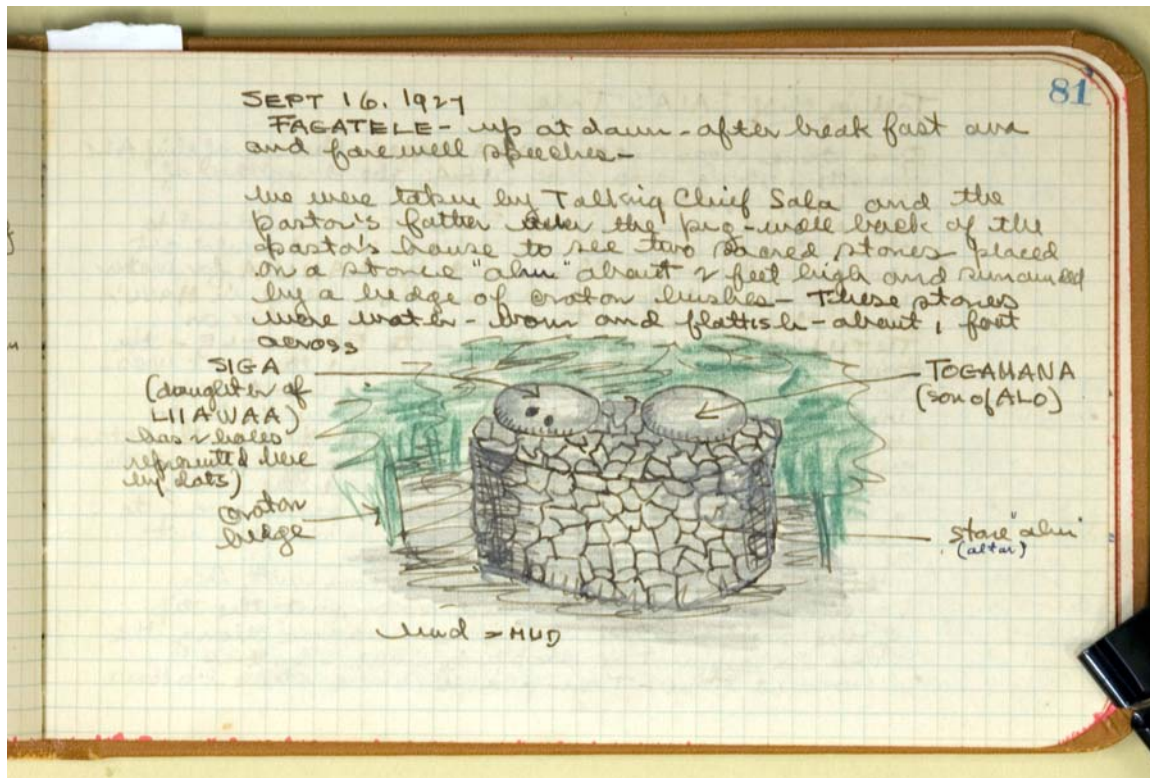 81
SEPT 16. 1927
FAGATELE - up at dawn - after break fast ava
and farewell speeches -
we were taken by Talking Chief Sala and the
pastor's father over the pig-wall back of the
pastor's house to see two sacred stones placed
on a stone "ahu" about 2 feet high and surrounded
by a hedge of croton bushes - These stones
were water-worn and flattish - about 1 foot
across
SIGA
(daughter of
LIIAWAA)
has 2 holes
represented here
by dots)
croton
hedge
TOGAMANA
(son of ALO)
stone "ahu"
(altar)
mud = MUD